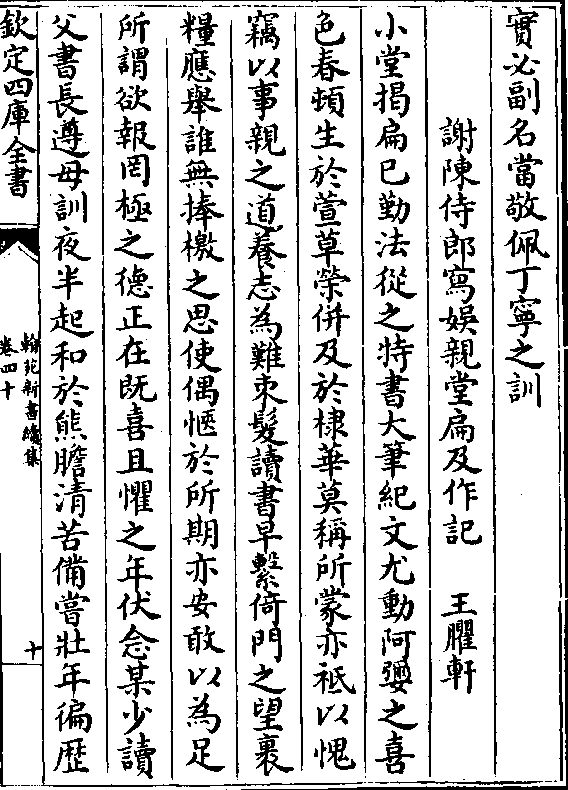 實必副名當敬佩丁寧之訓
謝陳侍郎寫娛親堂扁及作記 王臞軒
小堂揭扁已勤法從之特書大筆紀文尤動阿㜷之喜
色春頓生於萱草榮併及於棣華莫稱所蒙亦祗以愧
竊以事親之道養志為難束髮讀書早繫倚門之望裹
糧應舉誰無捧檄之思使偶愜於所期亦安敢以為足
所謂欲報罔極之德正在既喜且懼之年伏念某少讀
父書長遵母訓夜半起和於熊膽清苦備嘗壯年徧歴
欽定四庫全書
翰苑新書續集
卷四十
十